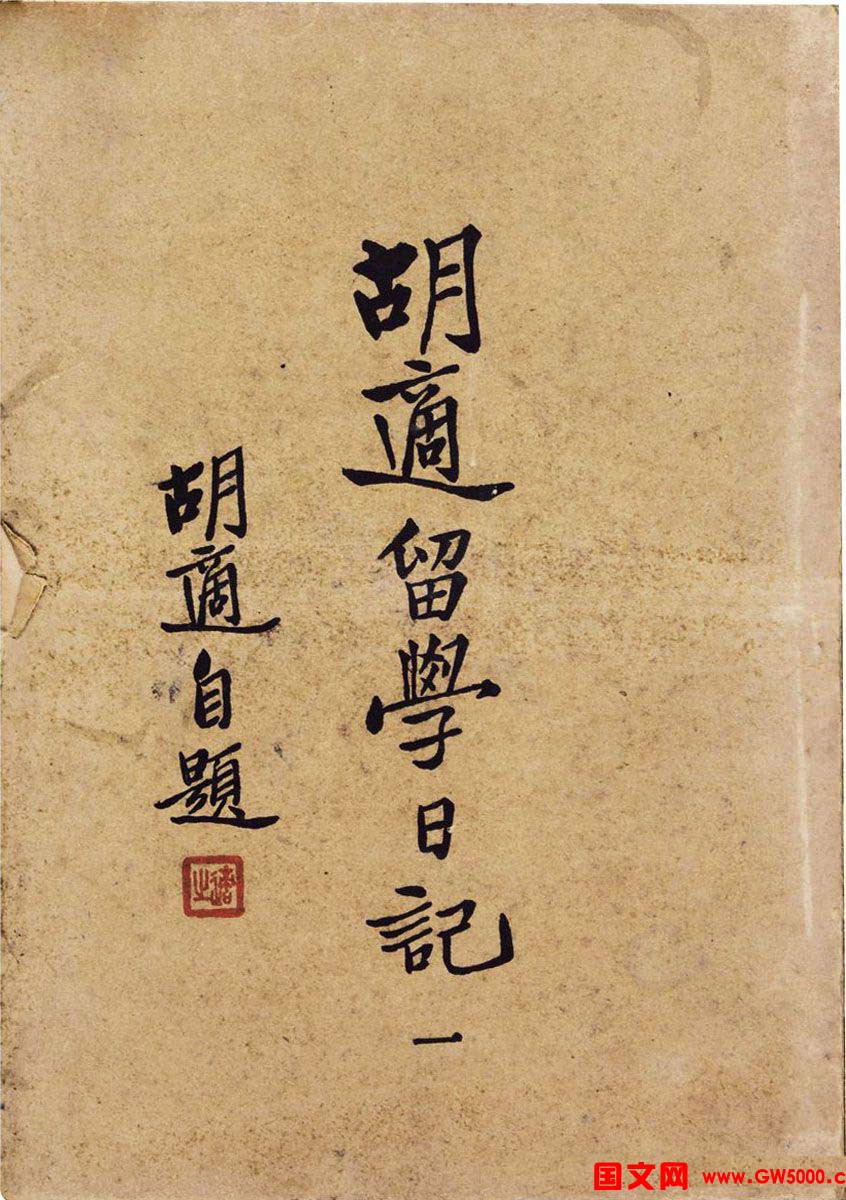 胡適留學日記
一
胡適自題
適之
国文网 www.GW5000.c